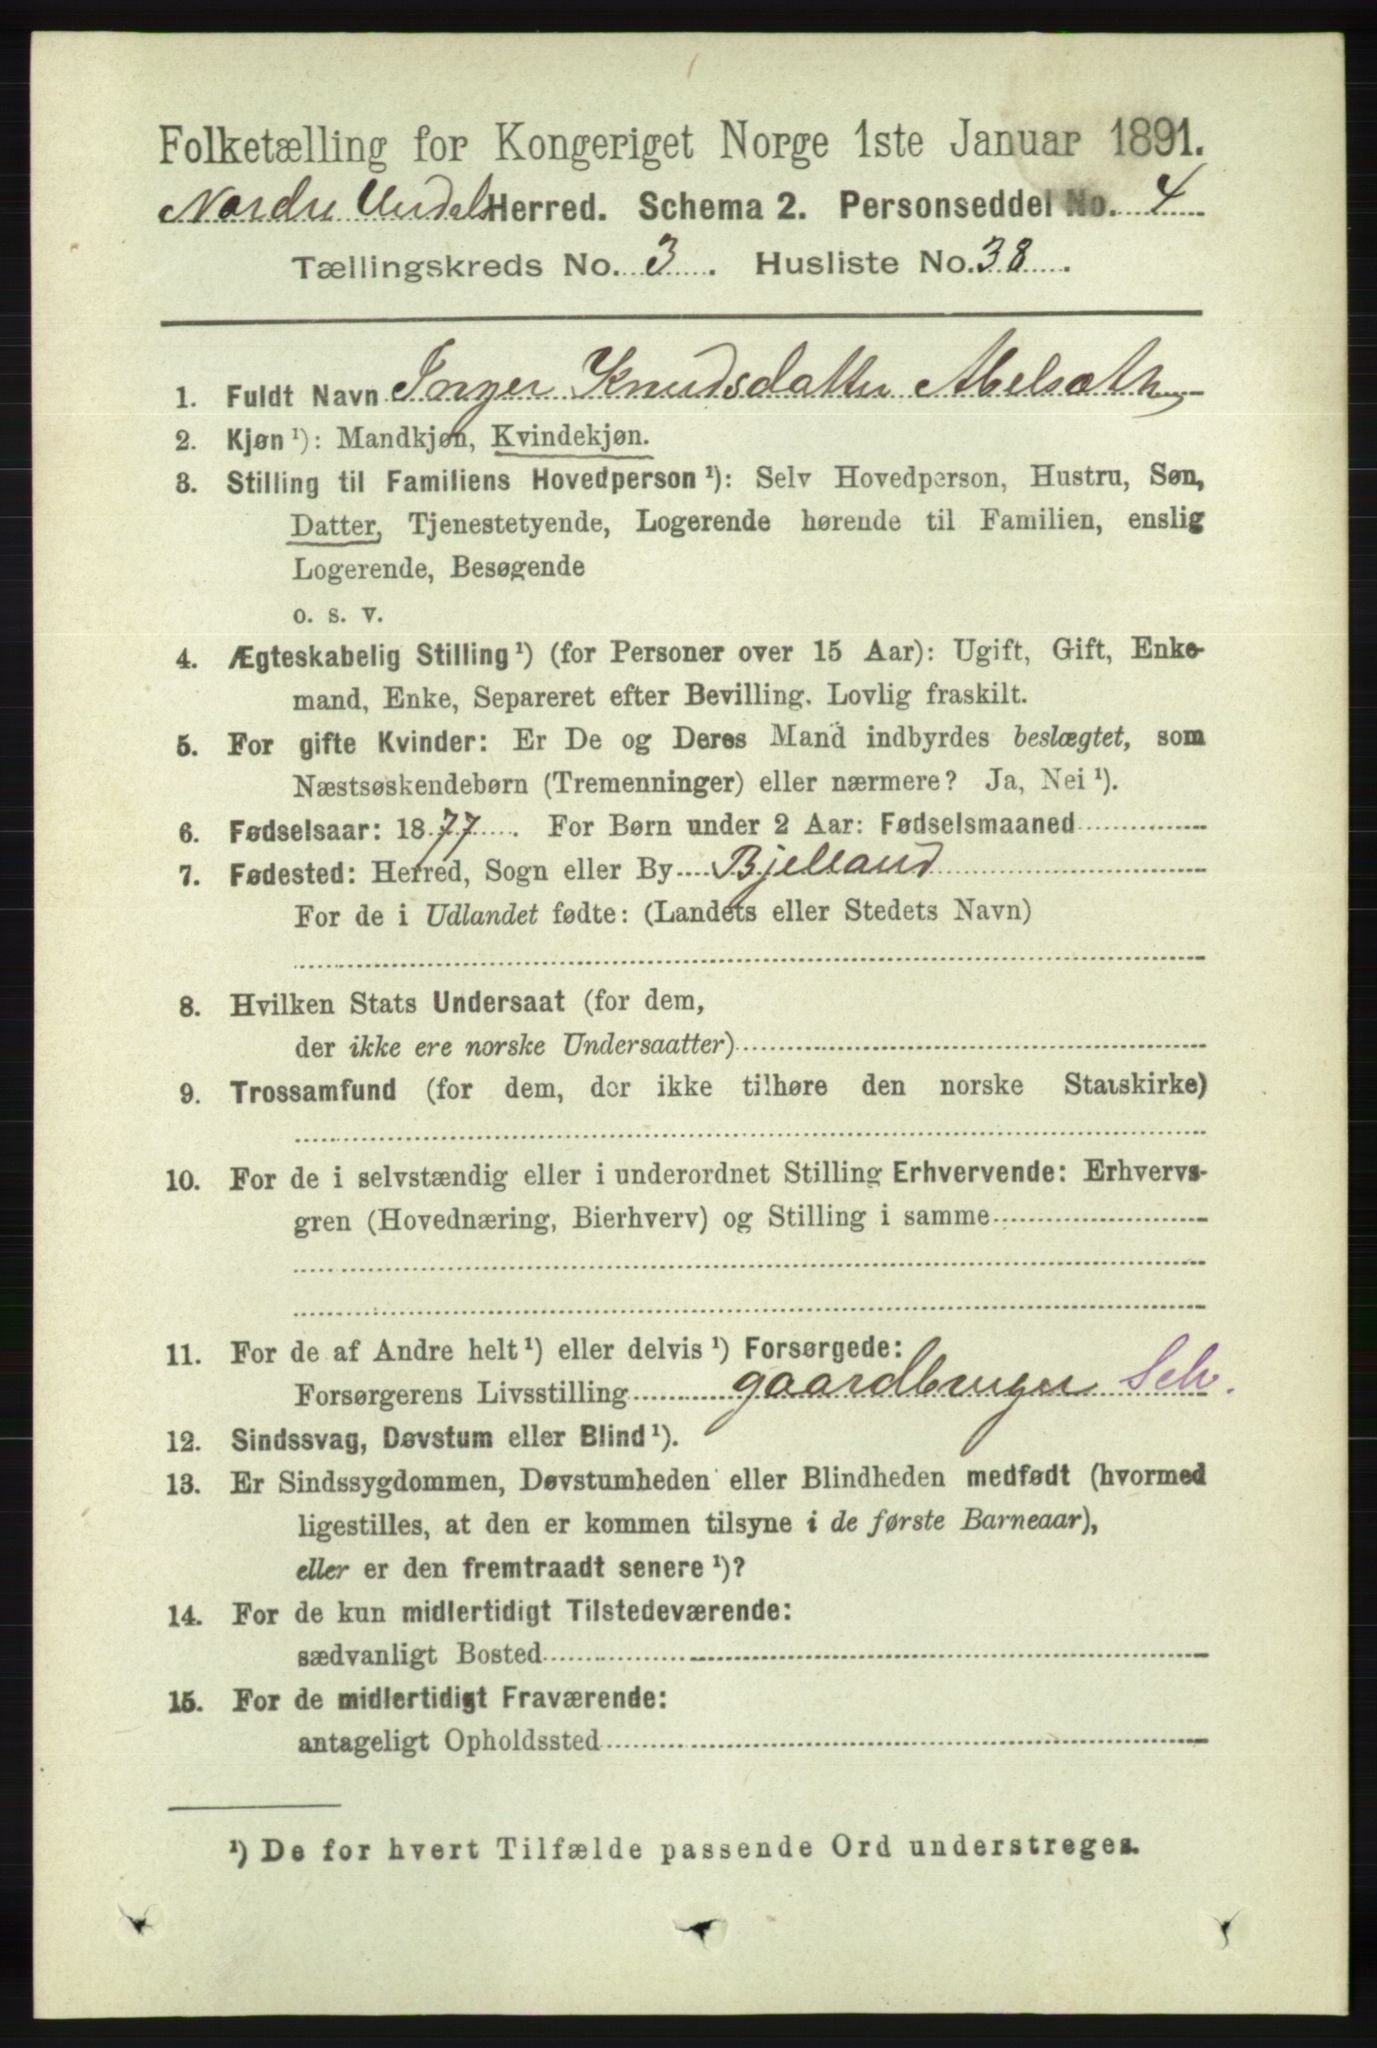 Folketælling for Kongeriget Norge 1ste Januar 1891.
Nordre Undals Herred. Schema 2. Personseddel No. 4
Tællingskreds No. 3. Husliste No. 38.
1. Fuldt Navn Inger Knudsdatter Abelsæth
2. Kjøn ¹): Mandkjøn, Kvindekjøn.
3. Stilling til Familiens Hovedperson ¹): Selv Hovedperson, Hustru, Søn,
Datter, Tjenestetyende, Logerende hørende til Familien, enslig
Logerende, Besøgende
o. s. v.
4. Ægteskabelig Stilling ¹) (for Personer over 15 Aar): Ugift, Gift, Enke-
mand, Enke, Separeret efter Bevilling. Lovlig fraskilt.
5. For gifte Kvinder: Er De og Deres Mand indbyrdes beslægtet, som
Næstsøskendebørn (Tremenninger) eller nærmere? Ja, Nei ¹).
6. Fødselsaar: 1877. For Børn under 2 Aar: Fødselsmaaned
7. Fødested: Herred, Sogn eller By Bjelland
For de i Udlandet fødte: (Landets eller Stedets Navn)
8. Hvilken Stats Undersaat (for dem,
der ikke ere norske Undersaatter)
9. Trossamfund (for dem, der ikke tilhøre den norske Statskirke)
10. For de i selvstændig eller i underordnet Stilling Erhvervende: Erhvervs-
gren (Hovednæring, Bierhverv) og Stilling i samme
11. For de af Andre helt ¹) eller delvis ¹) Forsørgede:
Forsørgerens Livsstilling gaardbruger Selv.
12. Sindssvag, Døvstum eller Blind ¹).
13. Er Sindssygdommen, Døvstumheden eller Blindheden medfødt (hvormed
ligestilles, at den er kommen tilsyne i de første Barneaar),
eller er den fremtraadt senere ¹)?
14. For de kun midlertidigt Tilstedeværende:
sædvanligt Bosted
15. For de midlertidigt Fraværende:
antageligt Opholdssted
¹) De for hvert Tilfælde passende Ord understreges.